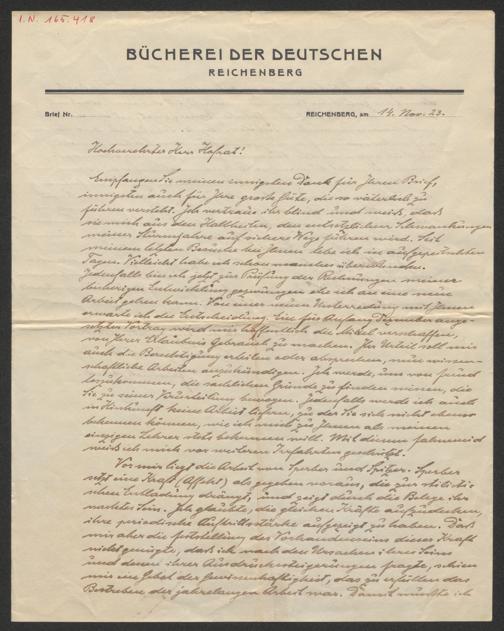 I.N. 165.418
BÜCHEREI DER DEUTSCHEN
REICHENBERG
Brief Nr.
REICHENBERG, am 14. Nov. 23.
Hochverehrter Herr Hofrat!
Empfangen Sie meinen innigsten Dank für Ihren Brief,
innigsten auch für Ihre große Güte, die so väterlich zu
führen versteht. Ich vertraue ihr blind und weiß, daß
sie mich aus den Halbheiten, den Schwankungen
meiner Sturmjahre auf sichere Wege führen wird. Seit
meinem letzten Besuche bei Ihnen lebe ich in aufgepeitschten
Tagen. Vielleicht habe ich schon manches überwunden.
Jedenfalls bin ich jetzt zur Prüfung der Rechnungen meiner
bisherigen Entwicklung gezwungen ehe ich an eine neue
Arbeit gehen kann. Von einer neuen Unterredung mit Ihnen
erwarte ich die Entscheidung. Ein für Anfang Dezember ange-
setzter Vortrag wird mir hoffentlich die Mittel verschaffen,
von Ihrer Erlaubnis Gebrauch zu machen. Ihr Urteil soll mir
auch die Berechtigung erteilen oder absprechen, neue wissen-
schaftliche Arbeiten anzukündigen. Ich werde, um von
loszukommen, die sachlichen Gründe zu finden wissen, die
Sie zu seiner Verurteilung bewogen. Jedenfalls werde ich auch
in Hinkunft keine Arbeit liefern, zu der Sie sich nicht ebenso
bekennen können, wie ich mich zu Ihnen als meinem
einzigen Lehrer stets bekennen will. Mit diesem
weiß ich mich vor weiteren Irrfahrten geschützt.
Vor mir liegt die Arbeit von Sperber und Spitzer. Sperber
setzt eine Kraft (Affekt) als gegeben voraus, die zur stilisti-
schen Entladung drängt, und zeigt durch die Belege ihr
nacktes Sein. Ich glaubte, die gleichen Kräfte aufzudecken,
ihre periodische Auftrittsstärke aufgezeigt zu haben. Daß
mir aber die Feststellung des Vorhandenseins dieser Kraft
nicht genügte, daß ich nach den Ursachen ihres Seins
und denen ihrer Ausdruckssteigerungen fragte, schien
mir ein Gebot der Gewissenhaftigkeit, das zu erfüllen das
Bestreben der jahrelangen Arbeit war. Damit mußte ich